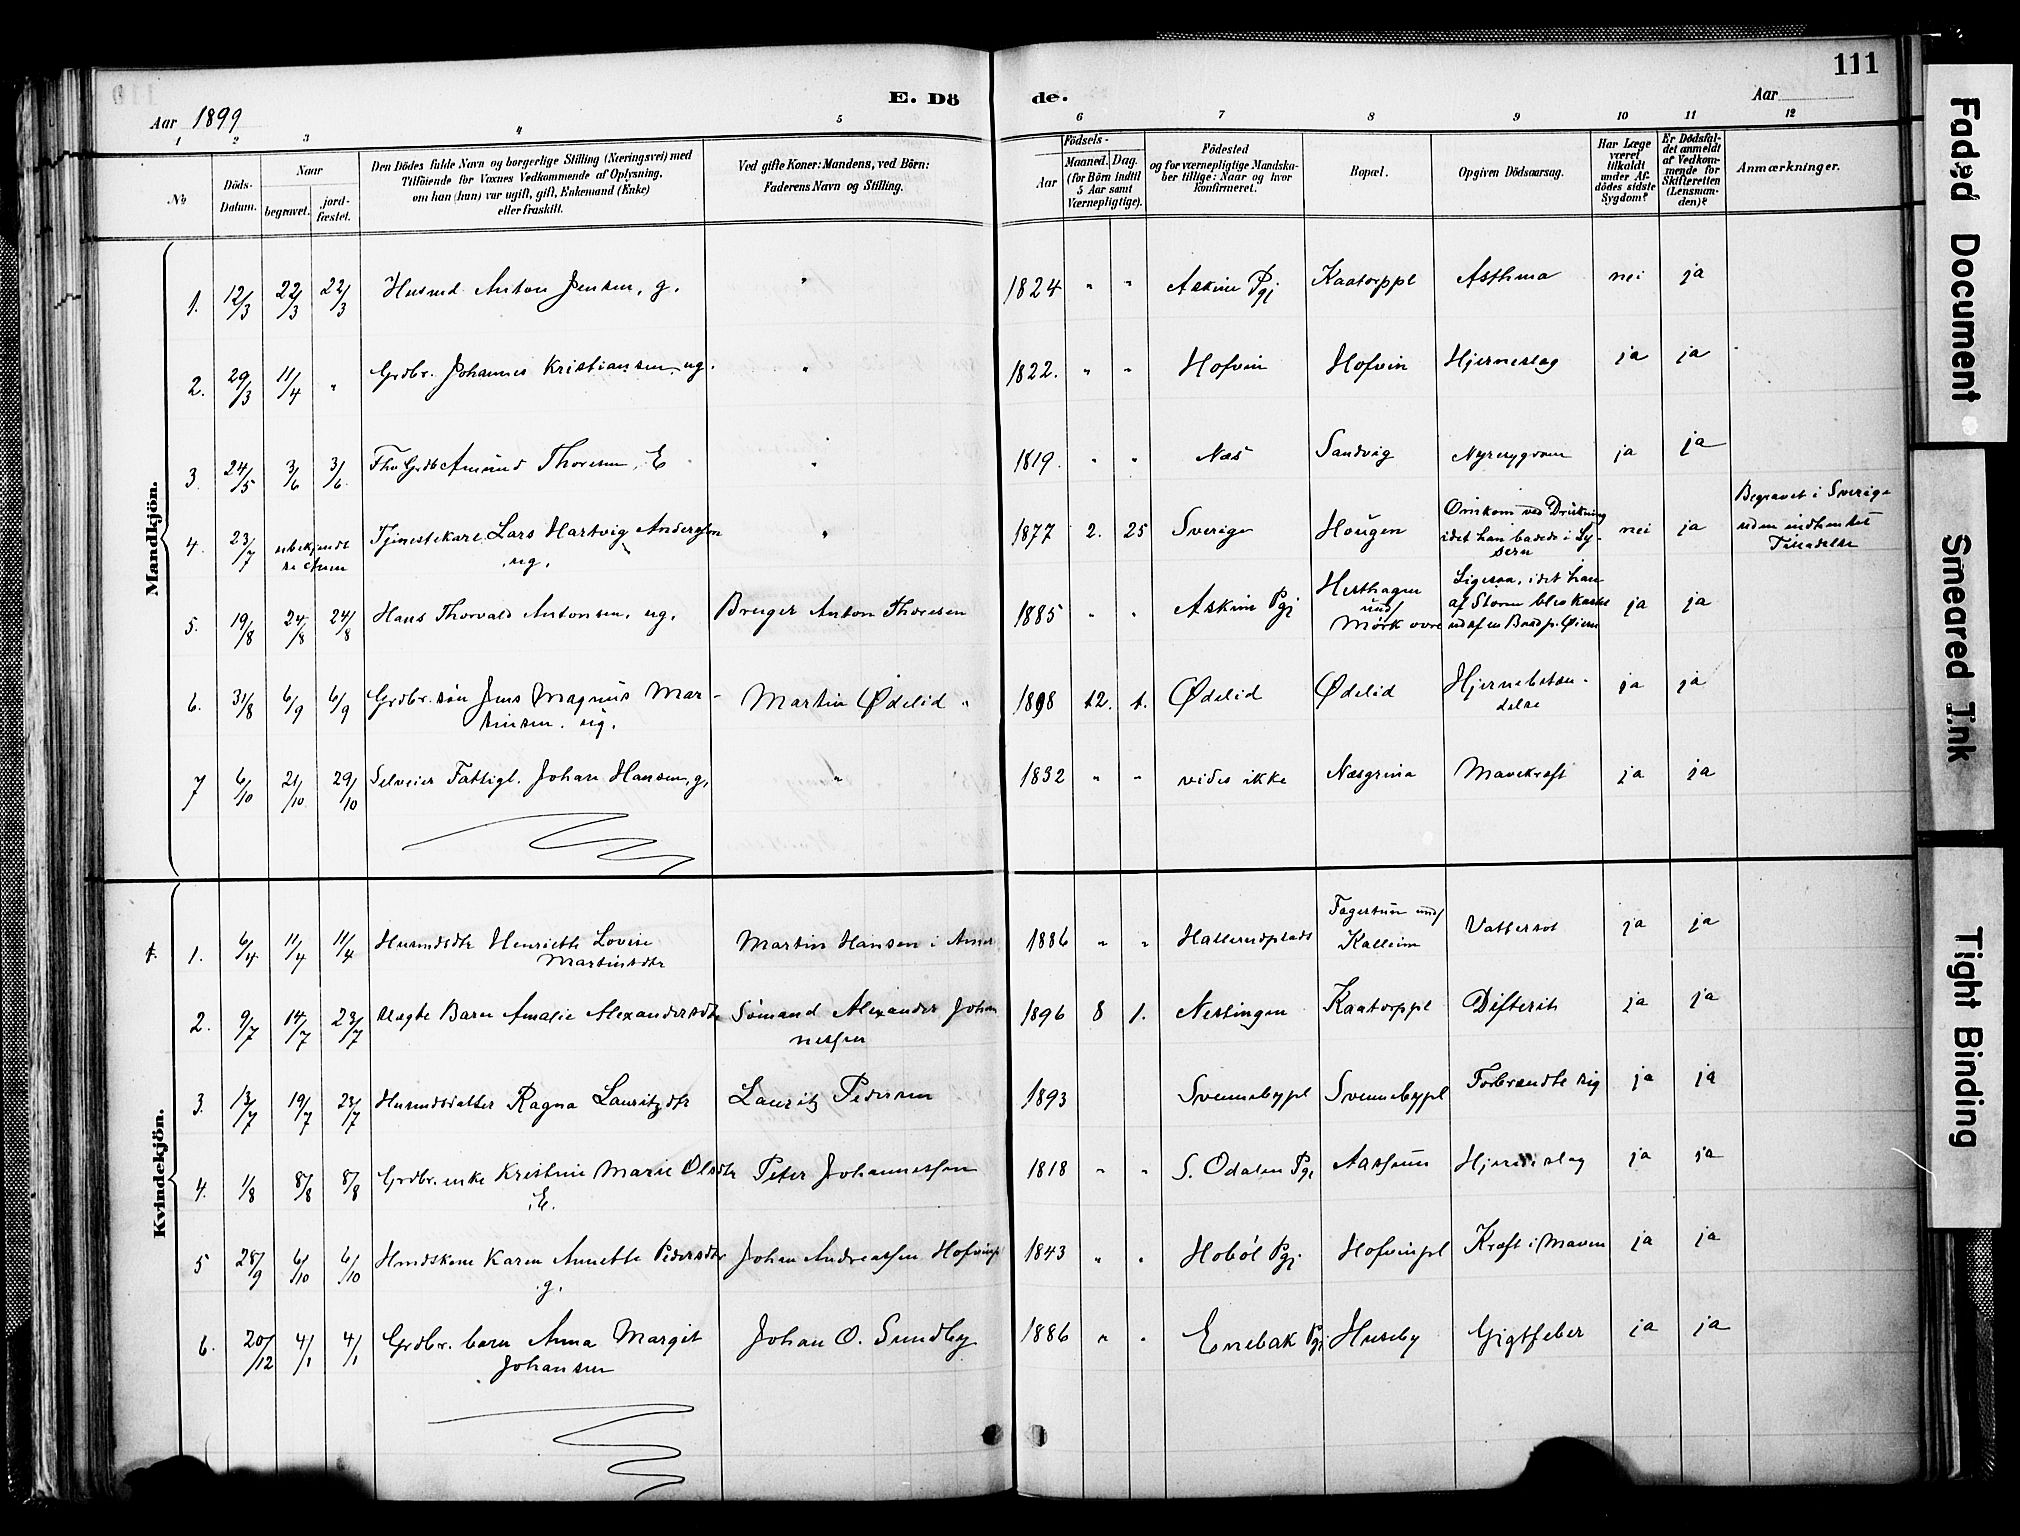 111
E. Dö de.
Aar 1899
Aar
1 2 3 4 5 6 7 8 9 10 11 12
No
Döds-Datum.
Naar
begravet.
jord-fæstet.
Den Dödes fulde Navn og borgerlige Stilling (Næringsvei) med
Tilföiende for Voxnes Vedkommende af Oplysning,
om han (hun) var ugift, gift, Enkemand (Enke)
eller fraskilt.
Ved gifte Koner: Mandens, ved Börn:
Faderens Navn og Stilling.
Födsels-
Aar
Maaned. Dag.
(for Börn indtil
5 Aar samt
Værnepligtige).
Födested
og for værnepligtige Mandska-
ber tillige: Naar og hvor
konfirmeret.
Bopæl.
Opgiven Dödsaarsag.
Har Læge
været
tilkaldt
under Af-
dödes sidste
Sygdom?
Er Dödsfal-
det anmeldt
af Vedkom-
mende for
Skifteretten
(Lensman-
den)?
Anmærkninger.
Mandkjön.
1. 12/3 22/3 22/3 Husmd Anton Jensen, g. " 1824 " " Askim Pgj Kaatorppl Asthma nei ja
2. 29/3 11/4 " Grdbr. Johannes Kristiansen, ug. " 1822. " " Hofvin Hofvin Hjerneslag ja ja
3. 24/5 3/6 3/6 Fhv Grdb Amund Thoresen, E " 1819. " " Næs Sandvig Nyresygdom ja ja
4. 23/7 ubekjendt Tjenestekarl Lars Hartvig Anderssen
ug. " 1877 2. 25 Sverige Hougen Omkom ved Drukning
idet han badede i Ly-
seren nei ja Begravet i Sverige
uden indhentet
Tilladelse
5. 19/8 24/8 24/8 Hans Thorvald Antonsen, ug. Bruger Anton Thoresen 1885 " " Askim Pgj Hesthagen
und/
Mørk øvre Ligesaa, idet han
af Storm blev kastet
ud af en Baad p. Øieren ja ja
6. 31/8 6/9 6/9 Grdbr. søn Jens Magnus Mar-
tinsen. ug. Martin Ødelid " 1898 12. 1. Ødelid Ødelid Hjernebetæn-
delse ja ja
7 6/10 21/10 29/10 Selveier Fattigl. Johan Hansen, g. " 1832 " " vides ikke Næsgrina Mavekræft ja ja
Kvindekjön.
1. 6/4 11/4 11/4 Husmdsdtr Henriette Lovise
Martinsdtr Martin Hansen i Amer 1886 " " Hallerudplads Fagertun und/
Kalleim Vattersot ja ja
2. 9/7 14/7 23/7 uægte Barn Amalie Alexandersdtr Sömand Alexander Johan
nessen 1896 8 1. Nestingen Kaatorppl Difterit ja ja
3. 13/7 19/7 23/7 Husmdsdatter Ragna Lauritzdtr Lauritz Pedersen 1893 Svennebypl Svennebypl Forbrændte sig ja ja
4. 1/8 8/8 8/8 Grdbr. enke Kristine Marie Olsdtr
E. Peter Johannessen 1818 " " S. Odalen Pgj Aassum Hjerneslag ja ja
5 28/9 6/10 6/10 Hmdskone Karen Annette Pedersdtr
g. Johan Andreassen Hofvinpl 1843 " " Hobøl Pgj Hofvinpl Kræft i Maven ja ja
6. 20/12 4/1 4/1 Grdbr. barn Anna Margit
Johansen Johan O. Sundby 1886 " " Enebak Pgj Huseby Gigtfeber ja ja
Faded Document
Smeared Ink
Tight Binding